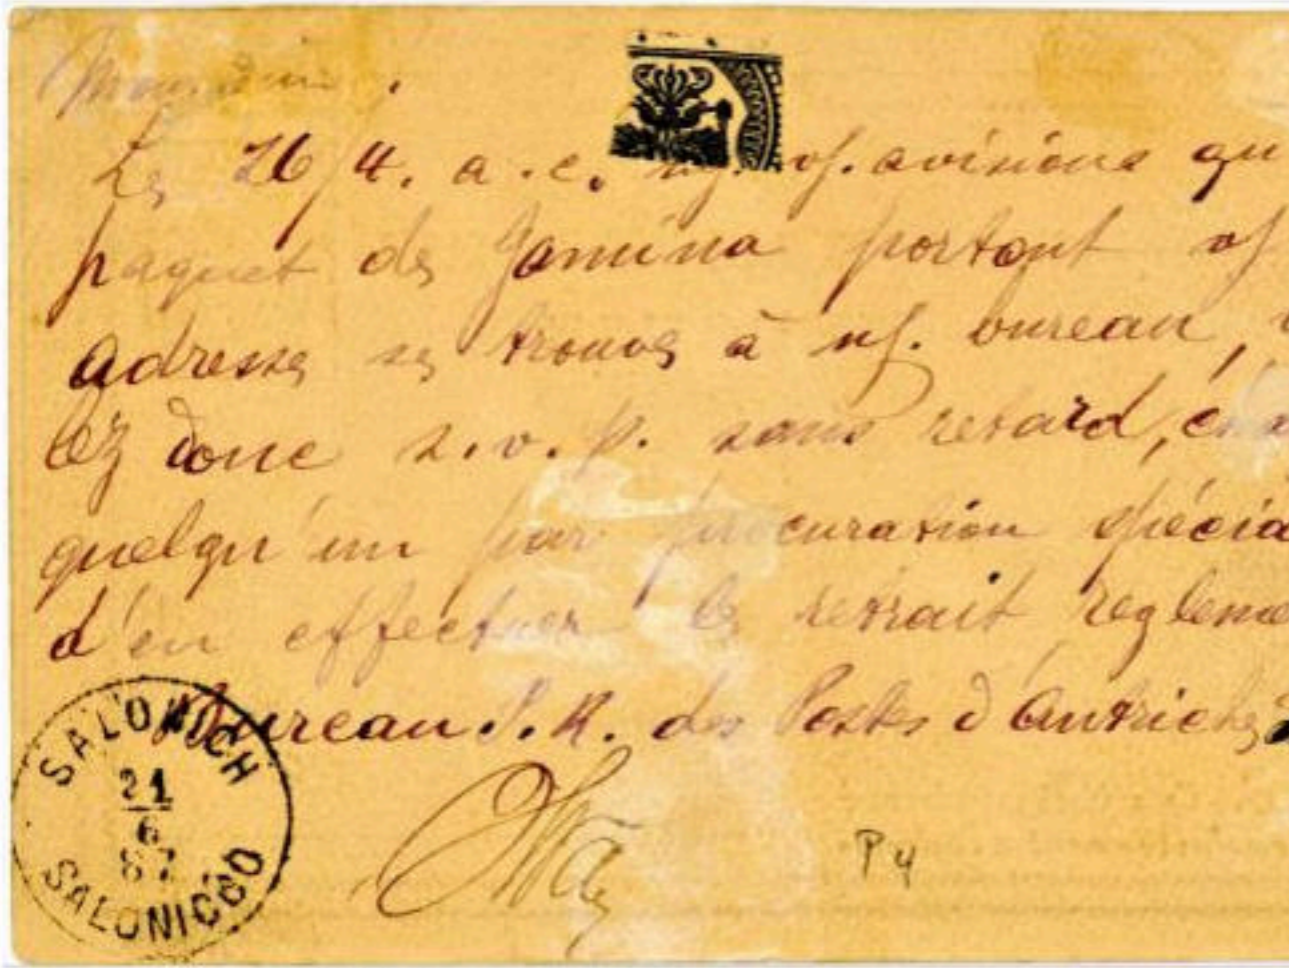 Le 26/4. a.c. n/. v/. avisions qu
paquet de Janina portant v/
adresse se trouve à n/. bureau,
lez donc s.v.p. sans retard,
quelqu'un par procuration spécia
d'en effectuer le retrait regleme
Bureau I. R. des Postes d'Autriche
SALONICH
21
6
87
SALONICCO
P 4